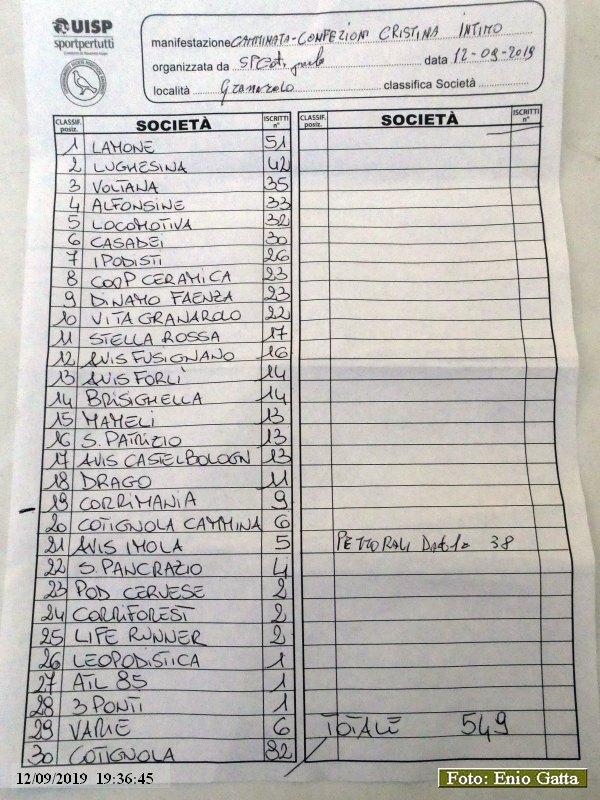 UISP
sportpertutti
manifestazione CAMMINATA - CONFEZIONI CRISTINA INTIMO
organizzata da data 12-09-2019
località Granarolo classifica Società
CLASSIF. posiz. SOCIETÀ ISCRITTI n° CLASSIF. posiz. SOCIETÀ ISCRITTI n°
1 LAMONE 51
2 LUGHESINA 42
3 VOLTANA 35
4 ALFONSINE 33
5 LOCOMOTIVA 32
6 CASADEI 30
7 IPODISTI 26
8 COOP CERAMICA 23
9 DINAMO FAENZA 23
10 VITA GRANAROLO 22
11 STELLA ROSSA 17
12 AVIS FUSIGNANO 16
13 AVIS FORLÌ 14
14 BRISIGHELLA 14
15 MAMELI 13
16 S. PATRIZIO 13
17 AVIS CASTELBOLOGN 13
18 DRAGO 11
19 CORRIMANIA 9
20 COTIGNOLA CAMMINA 6
21 AVIS IMOLA 5 PETTORALI 38
22 S. PANCRAZIO 4
23 POD CERVESE 2
24 CORRIFOREST 2
25 LIFE RUNNER 2
26 LEOPODISTICA 1
27 ATL 85 1
28 3 PONTI 1
29 VARIE 6 TOTALE 549
30 COTIGNOLA 82
12/09/2019 19:36:45
Foto: Enio Gatta